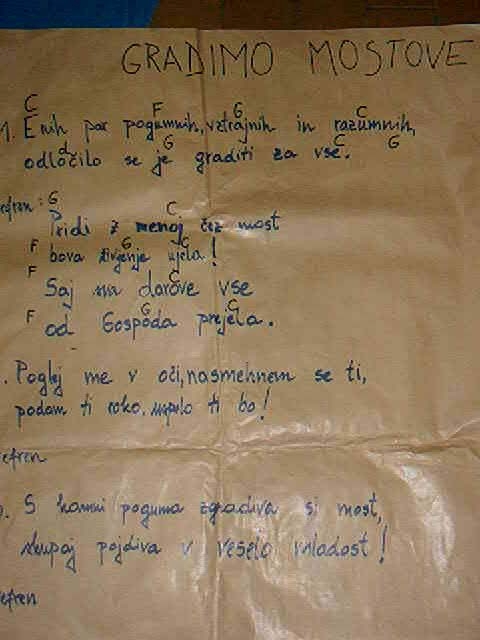 GRADIMO MOSTOVE
C F G C
1. Enih par pogumnih, vztrajnih in razumnih,
d G C G
odločilo se je graditi za vse.
efren: G C
Pridi z menoj čez most
F G C
bova življenje ujela!
F C
Saj sva darove vse
F G C
od Gospoda prejela.
. Poglej me v oči, nasmehnem se ti,
podam ti roko, uspelo ti bo!
efren
. S kamni poguma zgradiva si most,
skupaj pojdiva v veselo mladost!
efren